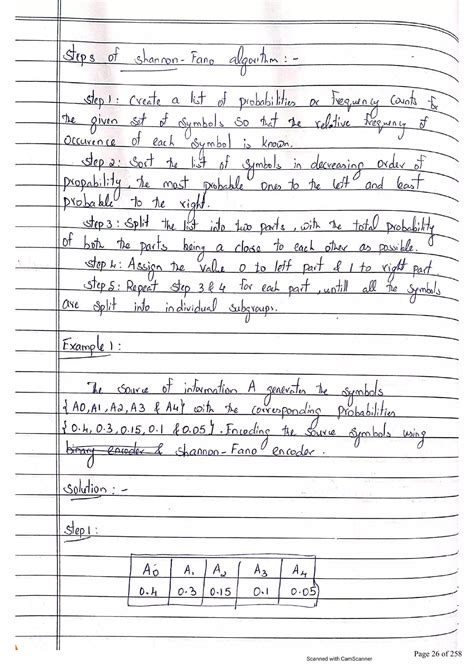 Steps of Shannon-Fano algorithm :-
Step 1: Create a list of probabilities or frequency counts for
the given set of symbols so that the relative frequency of
occurence of each symbol is known.
Step 2: Sort the list of symbols in decreasing order of
propability, the most probable ones to the left and least
probable to the right.
Step 3: Split the list into two parts, with the total probability
of both the parts being a close to each other as possible.
Step 4: Assign the value 0 to left part & 1 to right part.
Step 5: Repeat step 3 & 4 for each part, untill all the symbols
are split into individual subgroups.
Example 1:
The source of information A generates the symbols
{A0, A1, A2, A3 & A4} with the corresponding probabilities
{0.4, 0.3, 0.15, 0.1 & 0.05}. Encoding the source symbols using
binary encoder & shannon-Fano encoder.
Solution :-
Step 1:
A0 A1 A2 A3 A4
0.4 0.3 0.15 0.1 0.05
Page 26 of 258
Scanned with CamScanner